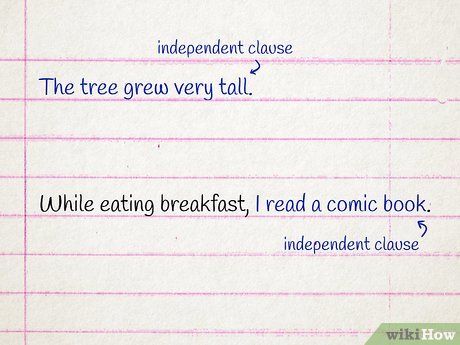 independent clause
The tree grew very tall.
While eating breakfast, I read a comic book.
independent clause
wikiHow